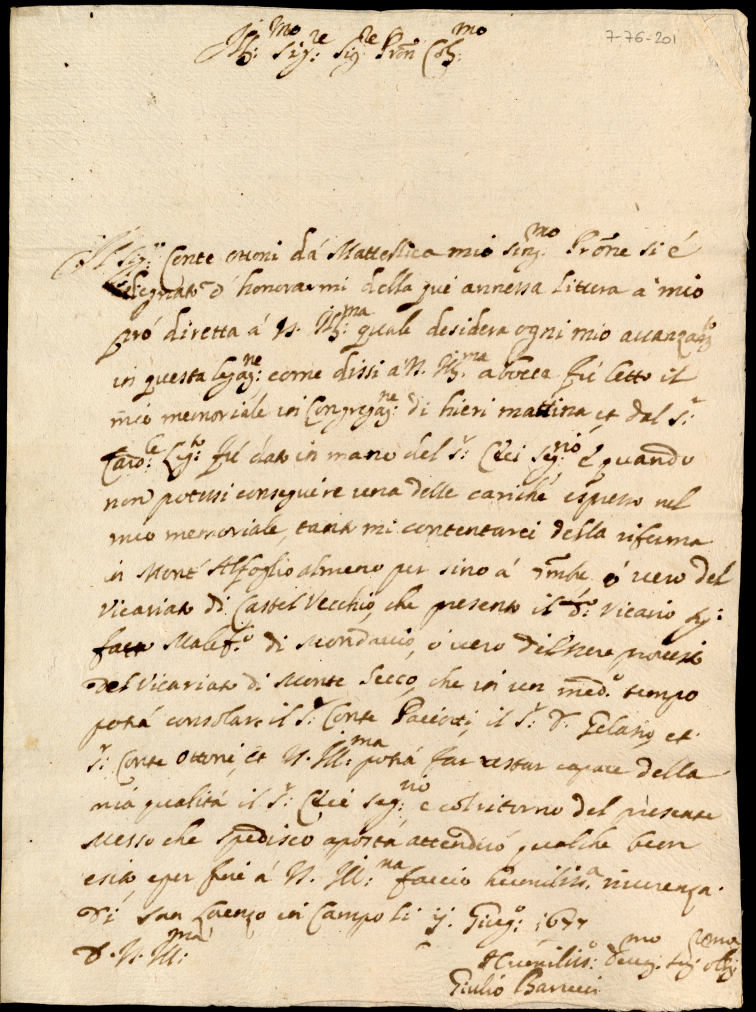 7-76-201
Ill:mo Sig:re Sig:re Pron Col:mo
Il Sig:r Conte Ottoni dà Mattellica mio Sing:mo Prone si é
degnato d'honorarmi della qui annessa littera à mio
pró diretta á V. Ill:ma quale desidera ogni mio auanzam:to
in questa legaz:ne come dissi á V. Ill:ma a bocca fú letto il
mio memoriale in Congregaz:ne di hieri mattina et dal S.r
Card:le Leg:to fú dato in mano del S.r Clei Seg:rio é quando
non potessi conseguire una delle cariche espresse nel
mio memoriale, mi contentarei della riferma
in Mont' Alfoglio almeno per sino á ó uero del
Vicariato di Castel Vecchio, che presento il d.o Vicario
fatto Malef.o di Mondauio, ó uero del
del Vicariato di Monte Secco, che in un med.o tempo
potrá consolare il S.r Conte Paciotti, il S.r D. Gelasio, et
S.r Conte Ottoni, et V. Ill:ma potrá far restar capace della
mia qualitá il S.r Clei Seg:rio e col ritorno del presente
Messo che spedisco aposta attenderó qualche buon
esito, e per fine á V. Ill:ma faccio humiliss.a riuerenza.
Di San Lorenzo in Campo li ij. Giug.o 1677
D. V. Ill:ma
Humiliss:o Deuo:mo Ser:
Giulio Barucci